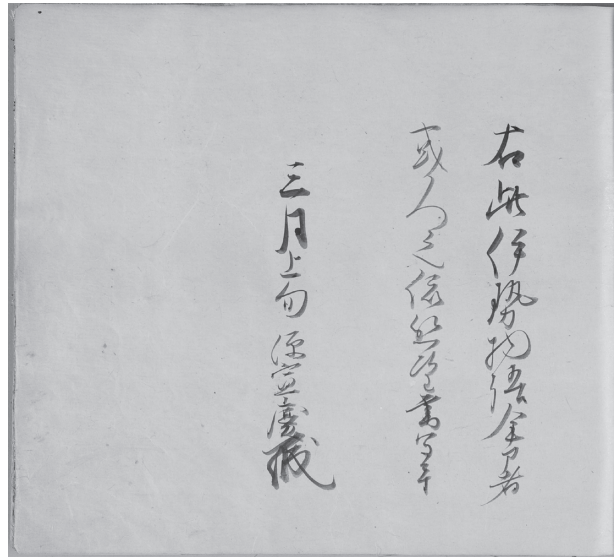 右此伊勢物語全部者
或人之依懇望書写畢
三月上旬 源宣慶識